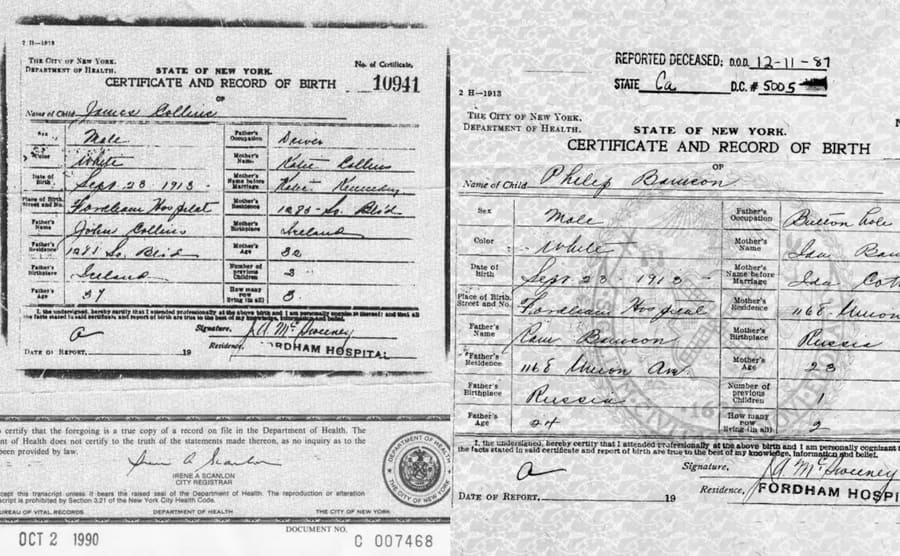 2 H—1913
THE CITY OF NEW YORK.
DEPARTMENT OF HEALTH.
STATE OF NEW YORK.
No. of Certificate,
CERTIFICATE AND RECORD OF BIRTH 10941
OF
Name of Child James Collins
Sex Male Father's Occupation Driver
Color White Mother's Name Katie Collins
Date of Birth Sept 23 1913 - Mother's Name before Marriage Katie
Place of Birth, Street and No. Fordham Hospital Mother's Residence So.
Father's Name John Collins Mother's Birthplace Ireland
Father's Residence So. Mother's Age 32
Father's Birthplace Ireland Number of previous Children 3
Father's Age 37 How many now living (in all) 3
I, the undersigned, hereby certify that I attended professionally at the above birth and I am personally cognizant thereof; and that all
the facts stated in said certificate and report of birth are true to the best of my knowledge, information and belief.
Signature, A McSweeney
DATE OF REPORT, 19 Residence, FORDHAM HOSPITAL
certify that the foregoing is a true copy of a record on file in the Department of Health. The
nt of Health does not certify to the truth of the statements made thereon, as no inquiry as to the
been provided by law.
Irene A Scanlon
IRENE A SCANLON
CITY REGISTRAR
DEPARTMENT OF HEALTH
THE CITY OF NEW YORK
cept this transcript unless it bears the raised seal of the Department of Health. The reproduction or alteration
script is prohibited by Section 3.21 of the New York City Health Code.
UREAU OF VITAL RECORDS DEPARTMENT OF HEALTH THE CITY OF NEW YORK
DOCUMENT NO.
OCT 2 1990 C 007468
REPORTED DECEASED: D.O.D. 12-11-87
STATE Ca D.C. # 5005
2 H—1913
THE CITY OF NEW YORK.
DEPARTMENT OF HEALTH.
STATE OF NEW YORK.
N
CERTIFICATE AND RECORD OF BIRTH
OF
Name of Child Philip
Sex Male Father's Occupation Button hole
Color White Mother's Name Ida
Date of Birth Sept 23 1913 - Mother's Name before Marriage Ida
Place of Birth, Street and No. Fordham Hospital Mother's Residence 1168 Union
Father's Name Mother's Birthplace Russia
Father's Residence 1168 Union Ave. Mother's Age 23
Father's Birthplace Russia Number of previous Children 1
Father's Age 24 How many now living (in all) 2
I, the undersigned, hereby certify that I attended professionally at the above birth and I am personally cognizant
the facts stated in said certificate and report of birth are true to the best of my knowledge, information and belief.
Signature, A McSweeney
DATE OF REPORT, 19 Residence, FORDHAM HOSPI